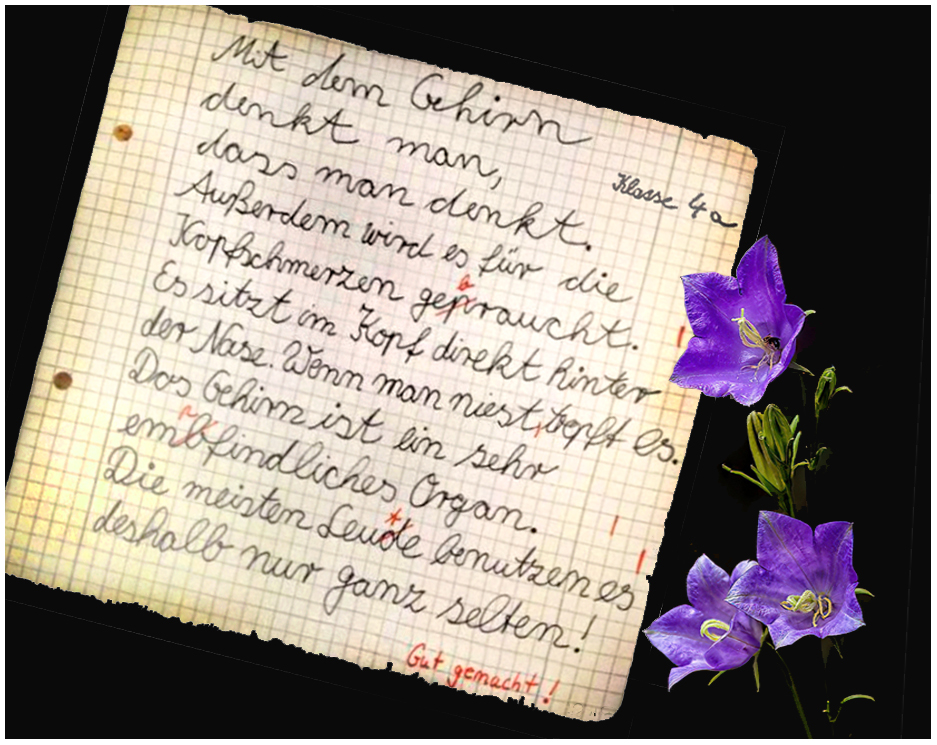 Mit dem Gehirn
denkt man,
dass man denkt.
Klasse 4a
Außerdem wird es für die
Kopfschmerzen gepraucht.
b
Es sitzt im Kopf direkt hinter
der Nase. Wenn man niest, tropft es.
Das Gehirn ist ein sehr
embfindliches Organ.
Die meisten Leude benutzen es
t
deshalb nur ganz selten!
Gut gemacht!